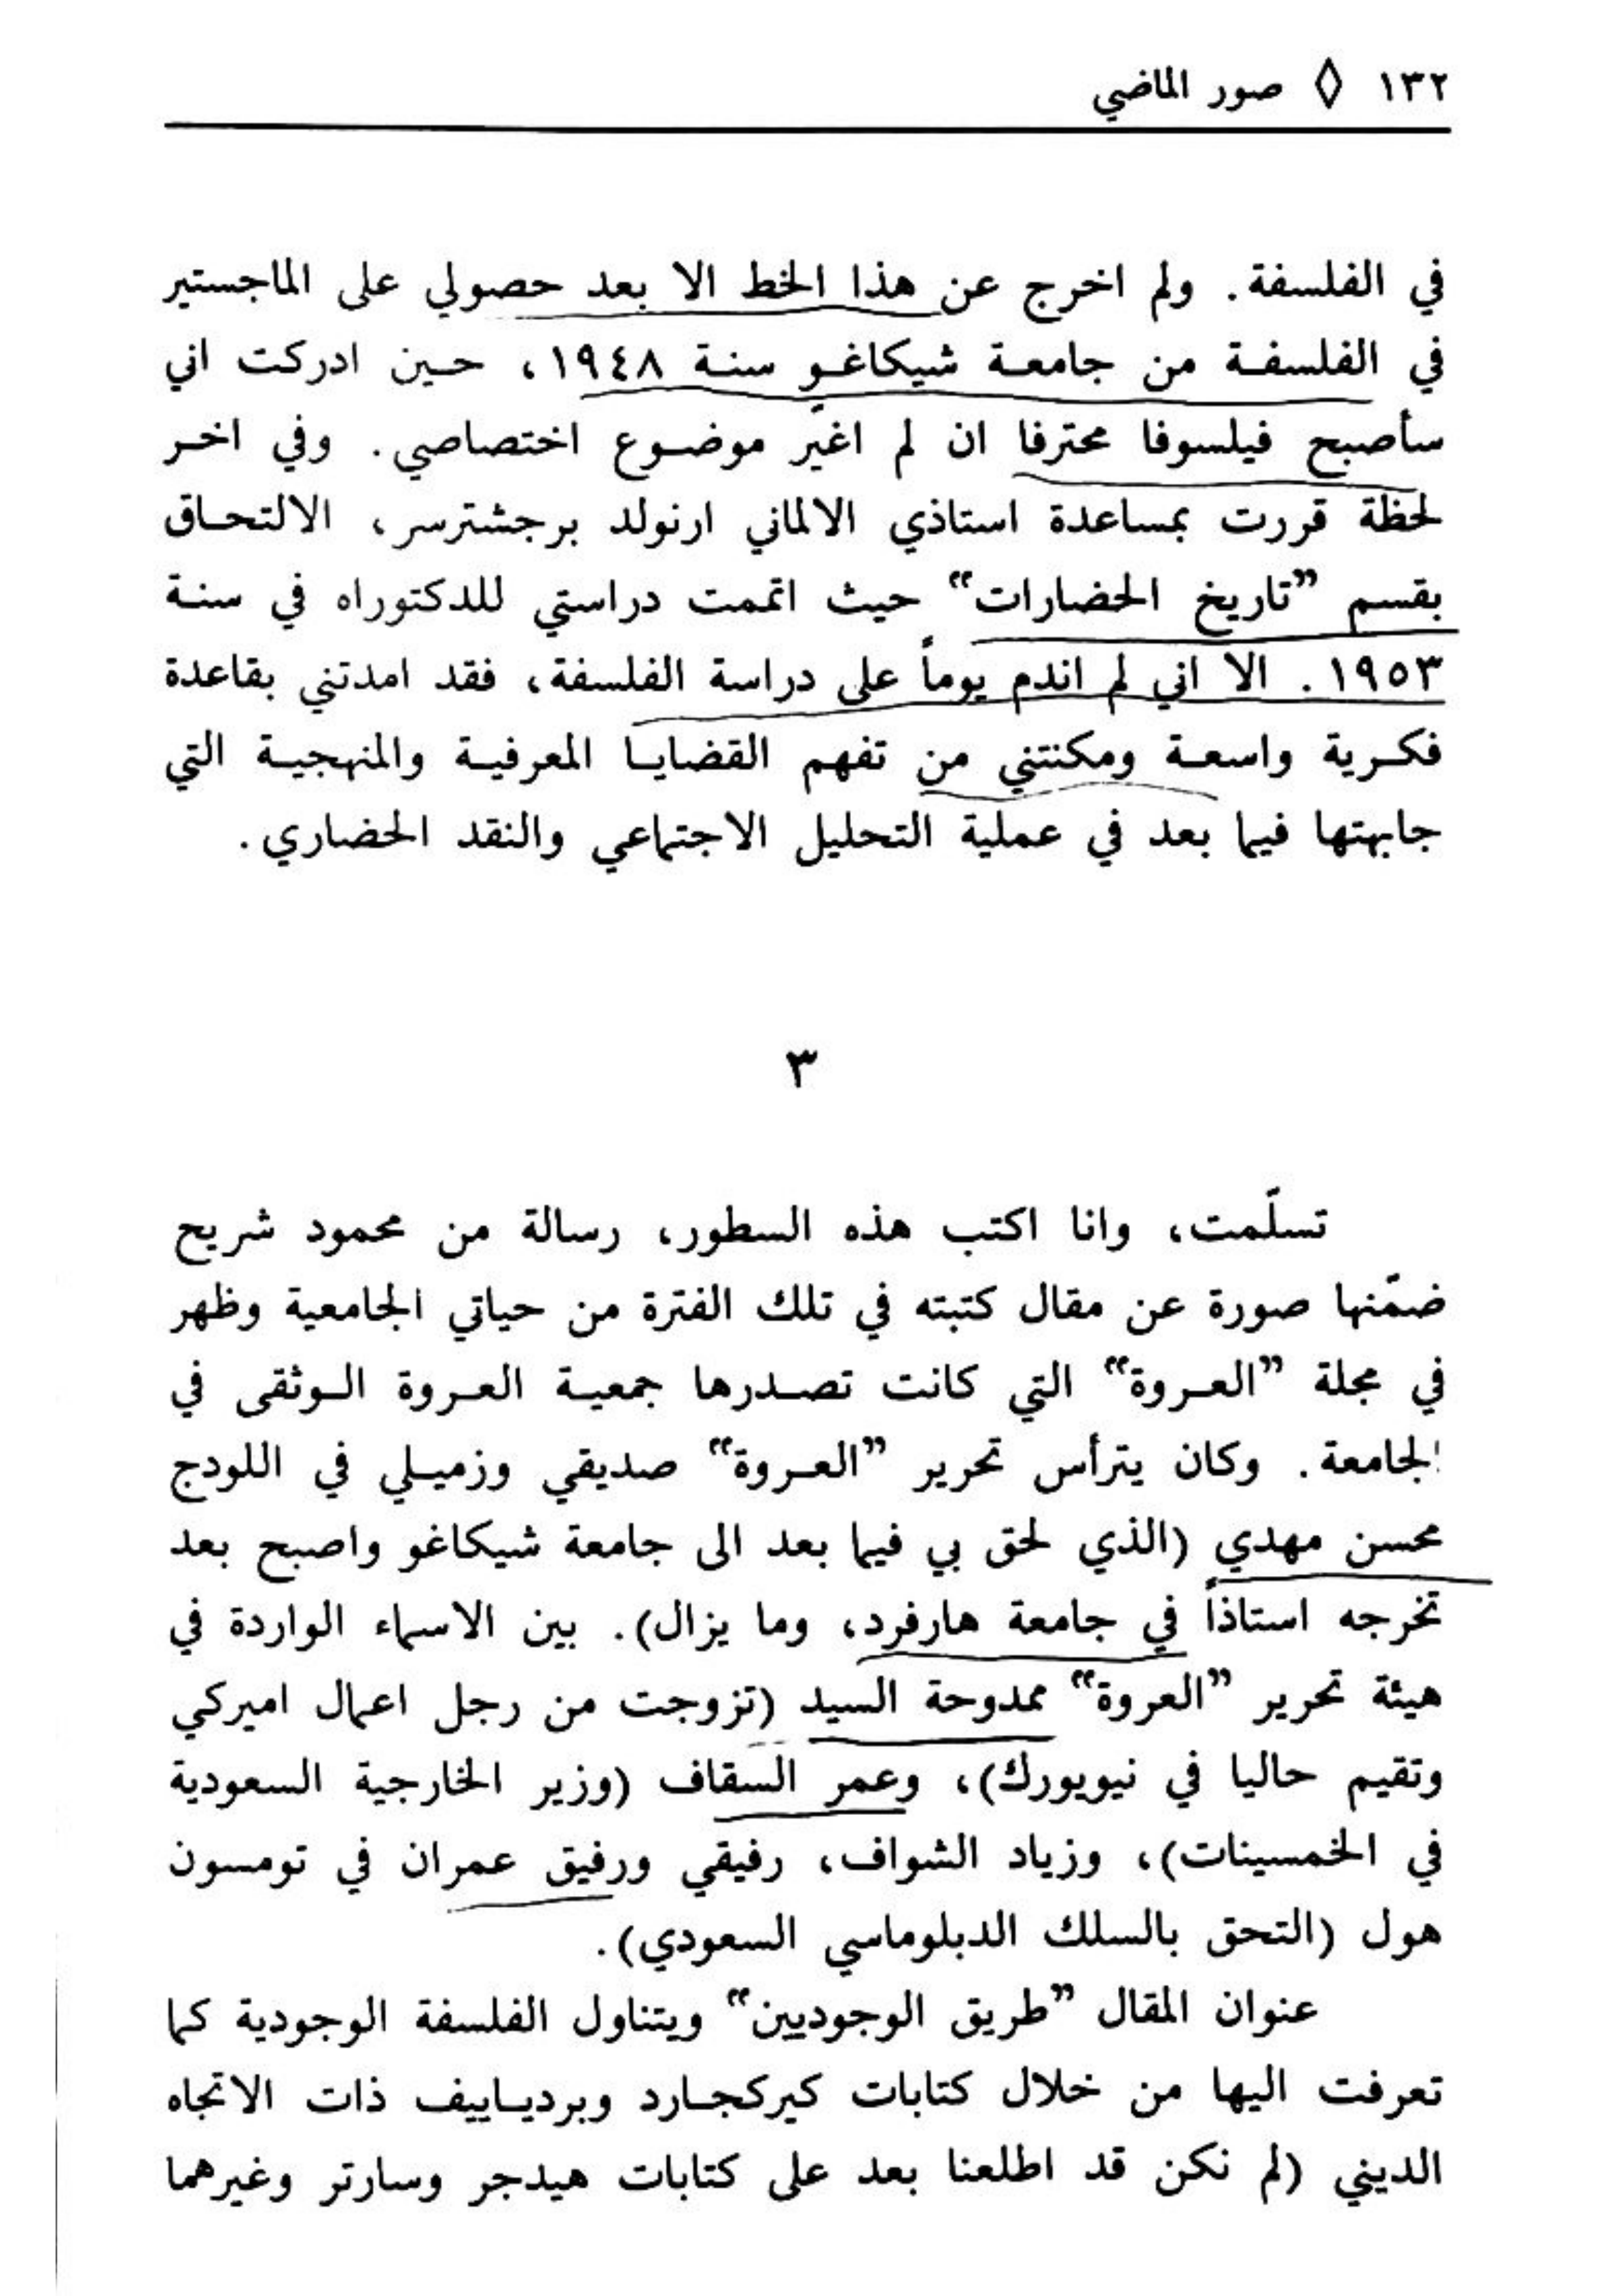 ١٣٢ ◊ صور الماضي
في الفلسفة. ولم اخرج عن هذا الخط الا بعد حصولي على الماجستير
في الفلسفة من جامعة شيكاغو سنة ١٩٤٨، حين ادركت اني
سأصبح فيلسوفا محترفا ان لم اغيّر موضوع اختصاصي. وفي اخر
لحظة قررت بمساعدة استاذي الالماني ارنولد برجشترسر، الالتحاق
بقسم ”تاريخ الحضارات“ حيث اتممت دراستي للدكتوراه في سنة
١٩٥٣. الا اني لم اندم يوماً على دراسة الفلسفة، فقد امدتني بقاعدة
فكرية واسعة ومكنتني من تفهم القضايا المعرفية والمنهجية التي
جابهتها فيما بعد في عملية التحليل الاجتماعي والنقد الحضاري.
٣
تسلّمت، وانا اكتب هذه السطور، رسالة من محمود شريح
ضمّنها صورة عن مقال كتبته في تلك الفترة من حياتي الجامعية وظهر
في مجلة ”العروة“ التي كانت تصدرها جمعية العروة الوثقى في
الجامعة. وكان يترأس تحرير ”العروة“ صديقي وزميلي في اللودج
محسن مهدي (الذي لحق بي فيما بعد الى جامعة شيكاغو واصبح بعد
تخرجه استاذاً في جامعة هارفرد، وما يزال). بين الاسماء الواردة في
هيئة تحرير ”العروة“ ممدوحة السيد (تزوجت من رجل اعمال اميركي
وتقيم حاليا في نيويورك)، وعمر السقاف (وزير الخارجية السعودية
في الخمسينات)، وزياد الشواف، رفيقي ورفيق عمران في تومسون
هول (التحق بالسلك الدبلوماسي السعودي).
عنوان المقال ”طريق الوجوديين“ ويتناول الفلسفة الوجودية كما
تعرفت اليها من خلال كتابات كيركجارد وبرديايیف ذات الاتجاه
الديني (لم نكن قد اطلعنا بعد على كتابات هيدجر وسارتر وغيرهما